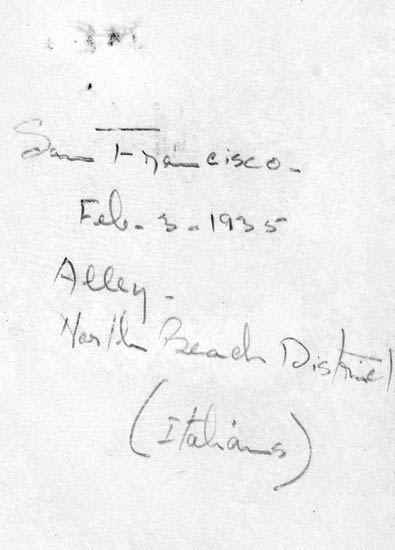 San Francisco.
Feb. 3. 1935
Alley.
North Beach District
(Italians)